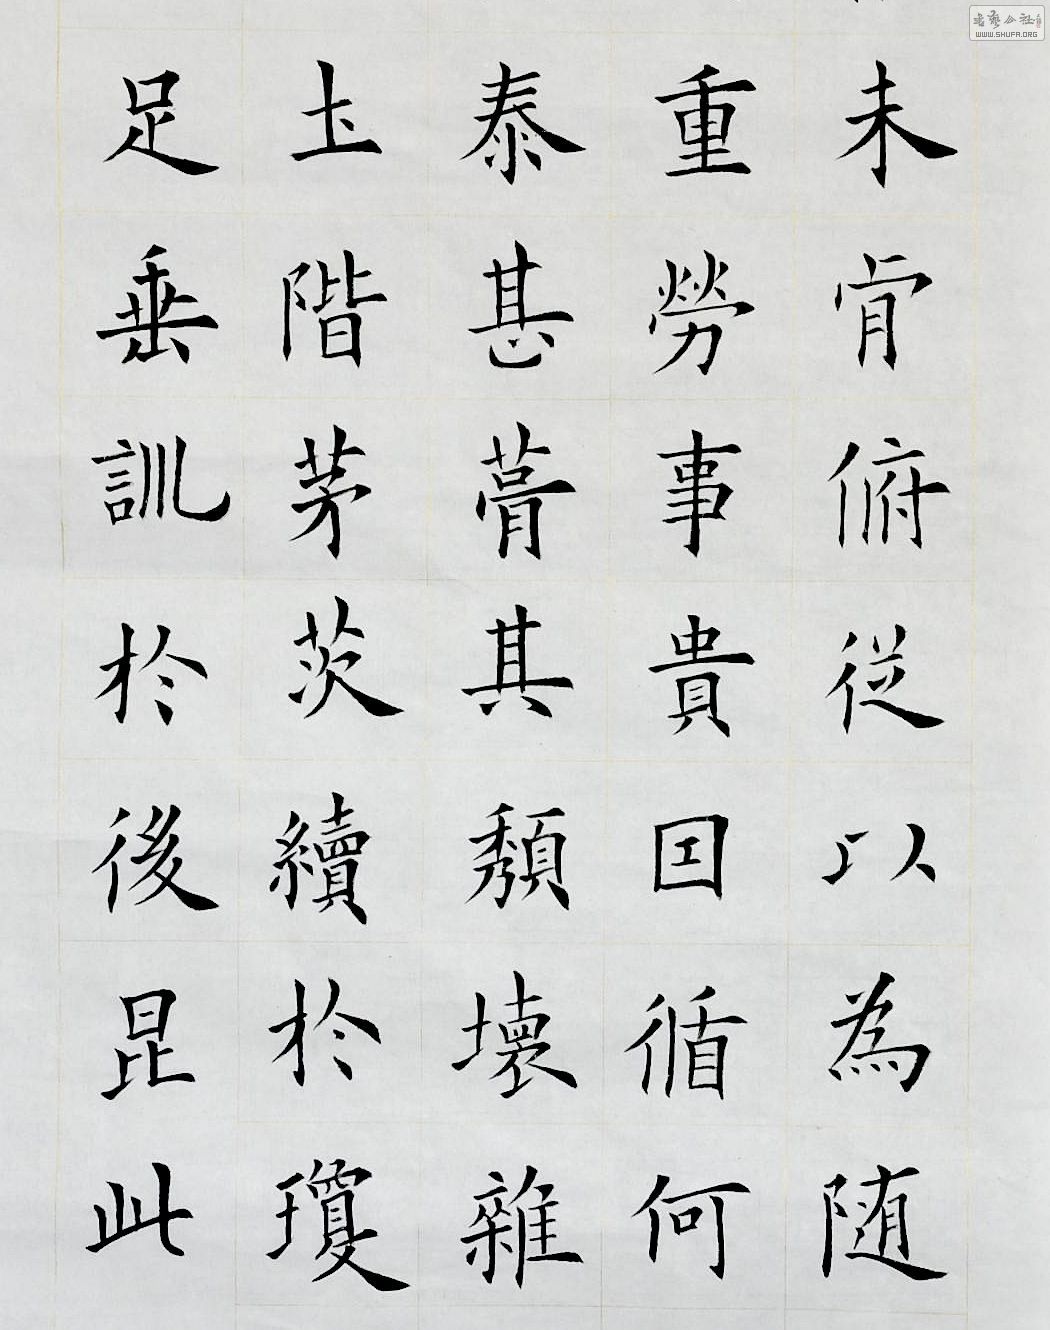 未肯俯從以為随
重勞事貴囙循何
泰甚葺其頽壞雜
圡階茅茨續於瓊
足垂訓於後昆此
書藝公社
WWW.SHUFA.ORG